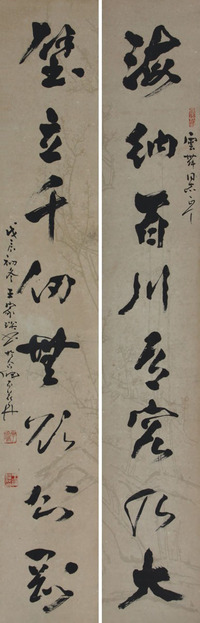 海納百川有容乃大
雲
壁立千仞無欲則剛
戊辰初冬王家